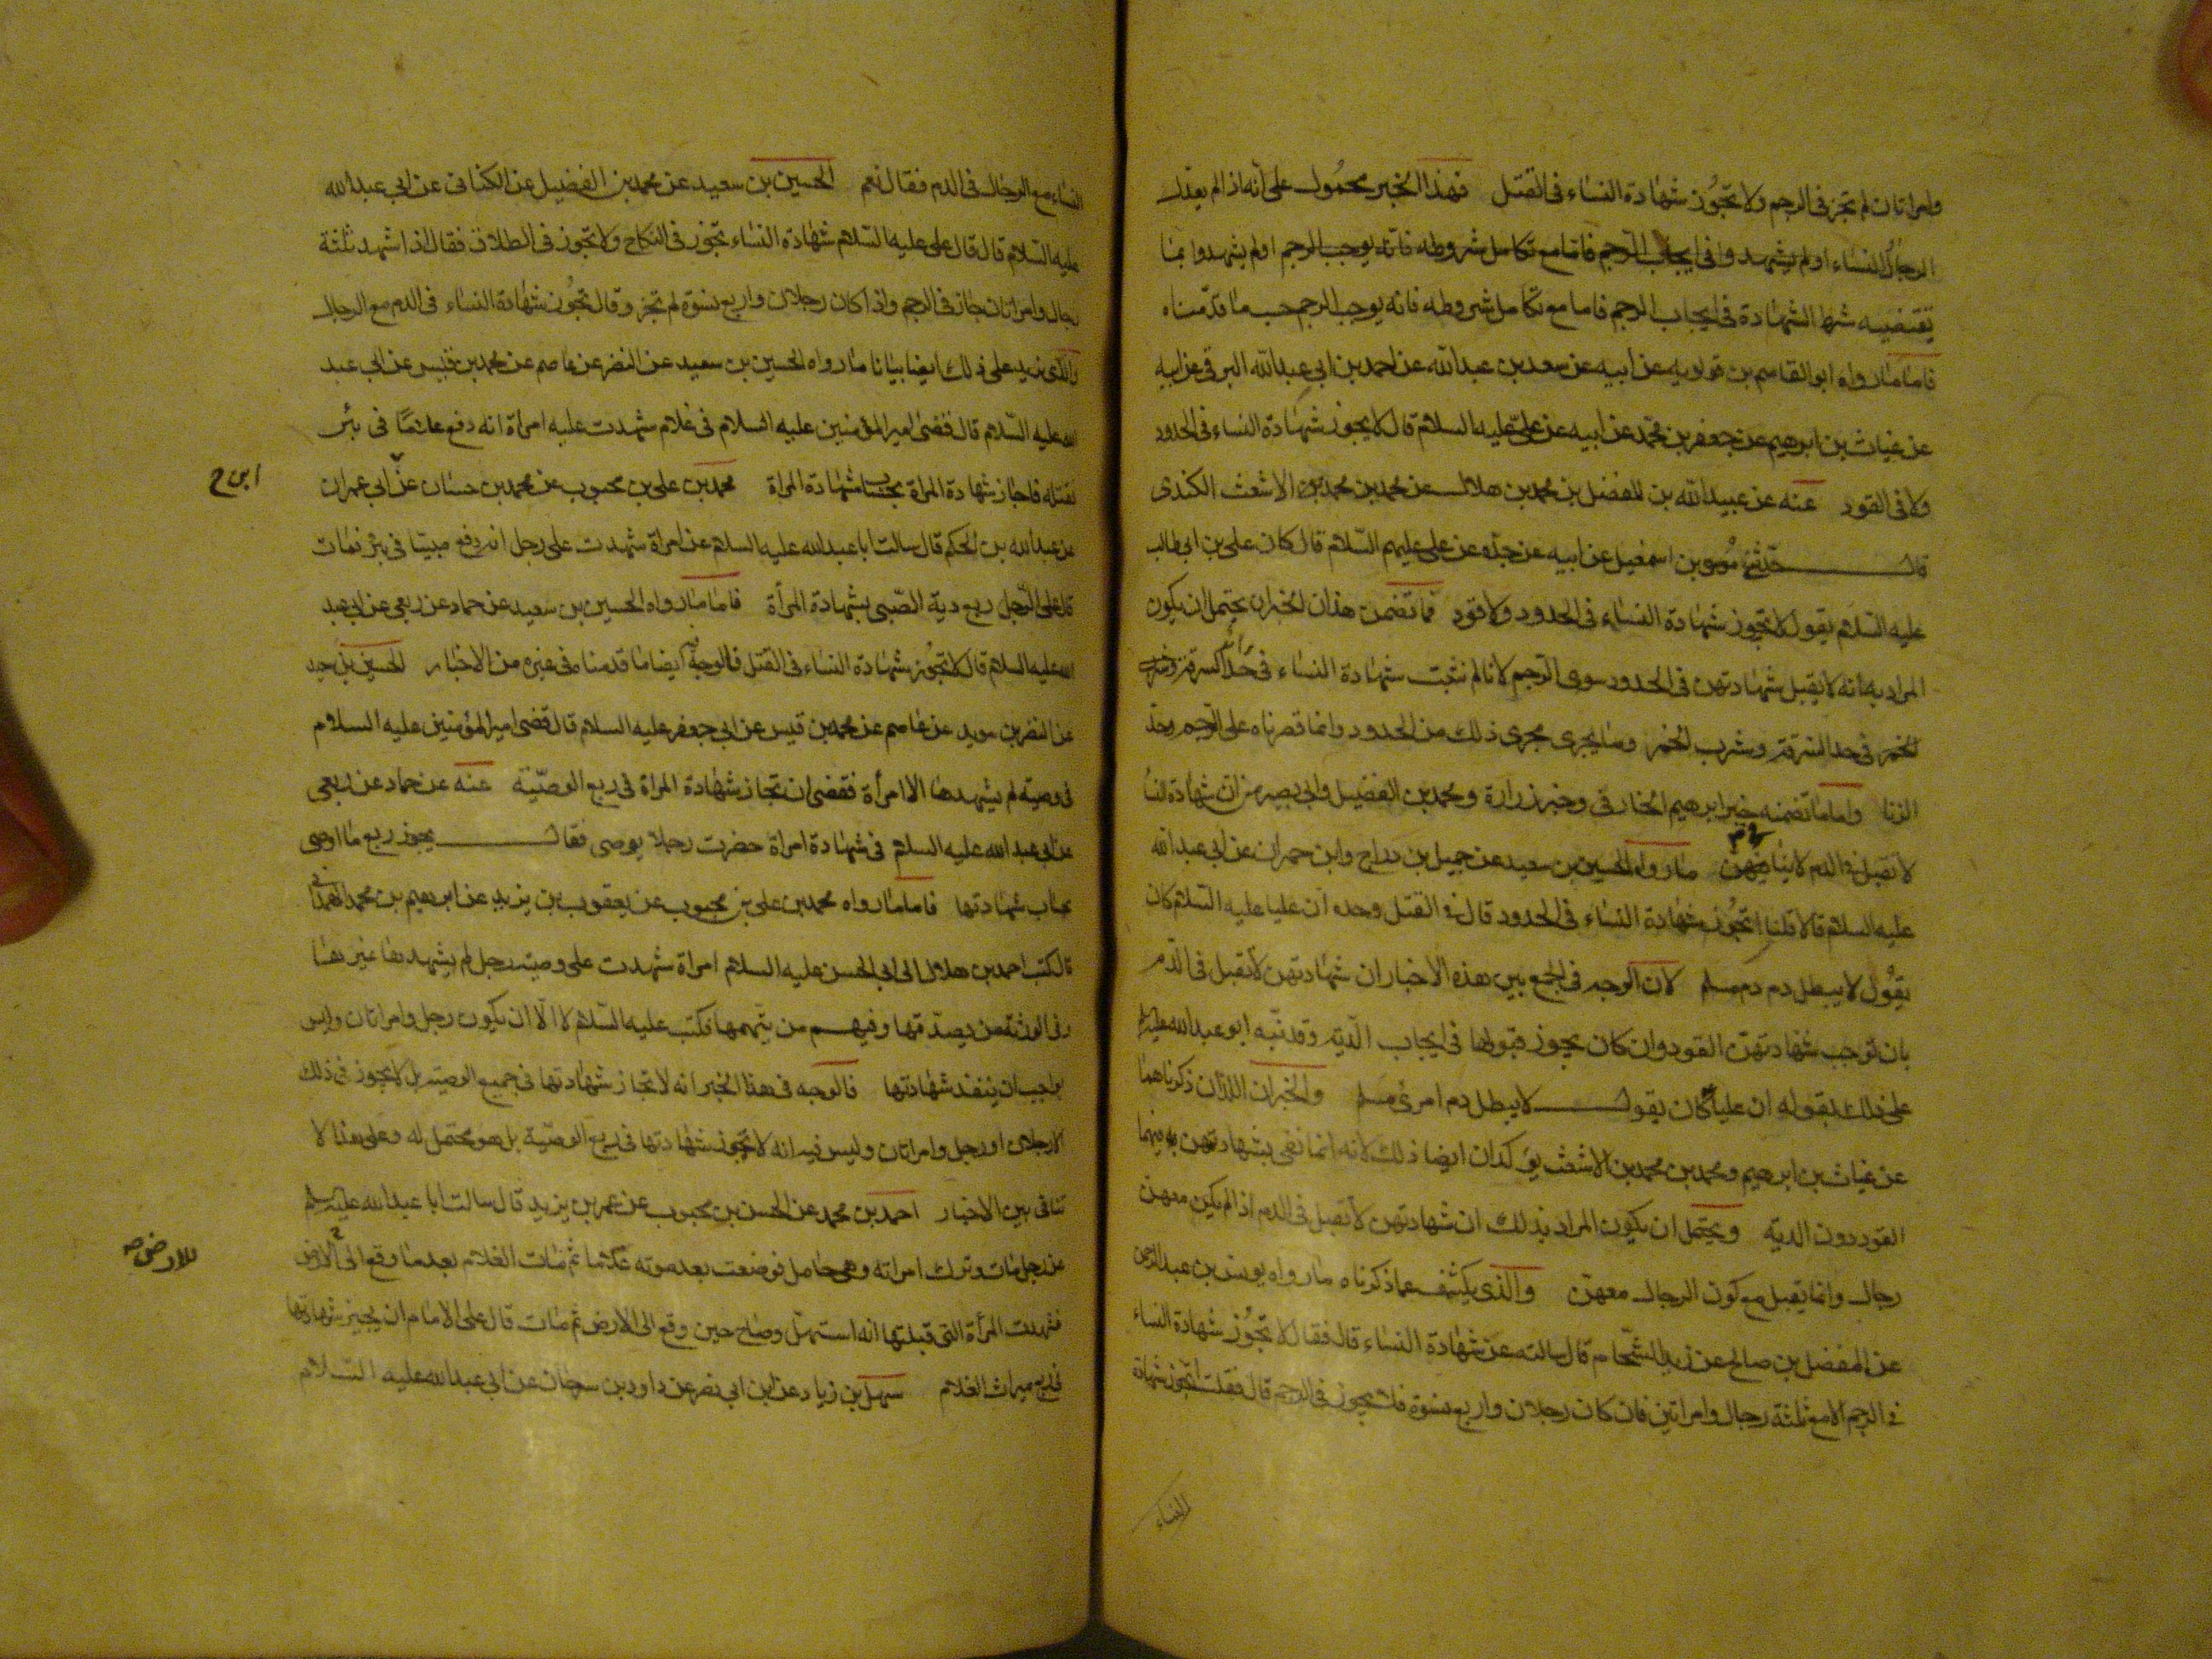 وامراتان لم تجز فى الرجم ولا تجوز شهادة النساء فى القتل فهذا الخبر محمول على انه اذا لم يعدل
الرجال النساء او لم يشهدوا فى ايجاب الرجم فاما مع تكامل شروطه فانه يوجب الرجم او لم يشهدوا بما
تقتضيه شرط الشهادة فى ايجاب الرجم فاما مع تكامل شروطه فانه يوجب الرجم حسب ما قدمناه
فاما ما رواه ابو القاسم بن قولويه عن ابيه عن سعد بن عبدالله عن احمد بن ابى عبدالله البرقى عن ابيه
عن غياث بن ابرهيم عن جعفر بن محمد عن ابيه عن على عليه السلام قال لا يجوز شهادة النساء فى الحدود
ولا فى القود عنه عن عبيدالله بن المفضل بن محمد بن هلال عن محمد بن محمد بن الاشعث الكندى
قال حدثنى موسى بن اسمعيل عن ابيه عن جده عن على عليهم السلام قال كان على بن ابى طالب
عليه السلام يقول لا تجوز شهادة النساء فى الحدود ولا قود فما تضمن هذان الخبران يحتمل ان يكون
المراد به انه لا يقبل شهادتهن فى الحدود سوى الرجم لانا لم نثبت شهادة النساء فى حد السرقة وشرب
الخمر فى حد السرقة وشرب الخمر وما يجرى مجرى ذلك من الحدود وانما قصرناه على الرجم وحد
الزنا واما ما تضمنه خبر ابرهيم الخارقى وخبر زرارة ومحمد بن الفضيل وابى بصير من ان شهادة النساء
لا تقبل فى الدم لا ينافيهن ما رواه الحسين بن سعيد عن جميل بن دراج وابن حمران عن ابى عبدالله
عليه السلام قالا قلنا اتجوز شهادة النساء فى الحدود قال فى القتل وحده ان عليا عليه السلام كان
يقول لا يبطل دم دم مسلم لان الوجه فى الجمع بين هذه الاخبار ان شهادتهن لا تقبل فى الدم
بان توجب شهادتهن القود وان كان يجوز قبولها فى ايجاب الدية وقد نبه ابو عبدالله عليه السلام
على ذلك بقوله ان عليا كان يقول لا يبطل دم امرئ مسلم والخبران اللذان ذكرناهما
عن غياث بن ابرهيم ومحمد بن محمد بن الاشعث يؤكدان ايضا ذلك لانه انما نفى بشهادتهن به فيهما
القود دون الدية ويحتمل ان يكون المراد بذلك ان شهادتهن لا تقبل فى الدم اذا لم يكن معهن
رجال وانما تقبل مع كون الرجال معهن والذى يكشف عما ذكرناه ما رواه يونس بن عبد الرحمن
عن المفضل بن صالح عن زيد الشحام قال سالته عن شهادة النساء قال فقال لا تجوز شهادة النساء
فى الرجم الا مع ثلثة رجال وامراتين فان كان رجلان واربع نسوة فلا يجوز فى الرجم قال فقلت اتجوز شهادة
النساء
النساء مع الرجال فى الدم فقال نعم الحسين بن سعيد عن محمد بن الفضيل عن الكنانى عن ابى عبدالله
عليه السلام قال قال على عليه السلام شهادة النساء تجوز فى النكاح ولا تجوز فى الطلاق فقال اذا شهد ثلثة
رجال وامراتان جاز فى الرجم واذا كان رجلان واربع نسوة لم تجز وقال تجوز شهادة النساء فى الدم مع الرجال
والذى يزيد على ذلك ايضا بيانا ما رواه الحسين بن سعيد عن النضر عن عاصم عن محمد بن قيس عن ابى عبد
الله عليه السلام قال قضى امير المؤمنين عليه السلام فى غلام شهدت عليه امراة انه دفع غلاما فى بئر
فقتله فاجاز شهادة المراة بحساب شهادة المراة محمد بن على بن محبوب عن محمد بن حسان عن ابى عمران
ابن خ
عن عبدالله بن الحكم قال سالت ابا عبدالله عليه السلام عن امراة شهدت على رجل انه دفع صبيا فى بئر فمات
قال على الرجل ربع دية الصبى بشهادة المرأة فاما ما رواه الحسين بن سعيد عن حماد عن ربعى عن ابى عبد
الله عليه السلام قال لا تجوز شهادة النساء فى القتل فالوجه فيه ايضا ما قدمنا فى غيره من الاخبار الحسين بن سعيد
عن النضر بن سويد عن عاصم عن محمد بن قيس عن ابى جعفر عليه السلام قال قضى امير المؤمنين عليه السلام
فى وصية لم يشهدها الا امرأة فقضى ان تجاز شهادة المراة فى ربع الوصية عنه عن حماد عن ربعى
عن ابى عبد الله عليه السلام فى شهادة امراة حضرت رجلا يوصى فقال يجوز ربع ما اوصى
بحساب شهادتها فاما ما رواه محمد بن على بن محبوب عن يعقوب بن يزيد عن ابرهيم بن محمد الهمدانى
قال كتب احمد بن هلال الى ابى الحسن عليه السلام امراة شهدت على وصية رجل لم يشهدها غيرها
وفى الورثة من يصدقها وفيهم من يتهمها فكتب عليه السلام لا الا ان يكون رجل وامراتان وليس
بواجب ان ينفذ شهادتها فالوجه فى هذا الخبر انه لا تجاز شهادتها فى جميع الوصية بل لا يجوز فى ذلك
الا رجلان او رجل وامراتان وليس فيه انه لا تجوز شهادتها فى ربع الوصية بل هو محتمل له وعلى هذا لا
تنافى بين الاخبار احمد بن محمد عن الحسن بن محبوب عن عمر بن يزيد قال سالت ابا عبدالله عليه السلام
عن رجل مات وترك امراته وهى حامل فوضعت بعد موته غلاما ثم مات الغلام بعد ما وقع الى الارض
للارض صح
فشهدت المرأة التى قبلتها انه استهل وصاح حين وقع الى الارض ثم مات قال على الامام ان يجيز شهادتها
فى ربع ميراث الغلام سهل بن زياد عن ابن ابى نصر عن داود بن سرحان عن ابى عبدالله عليه السلام